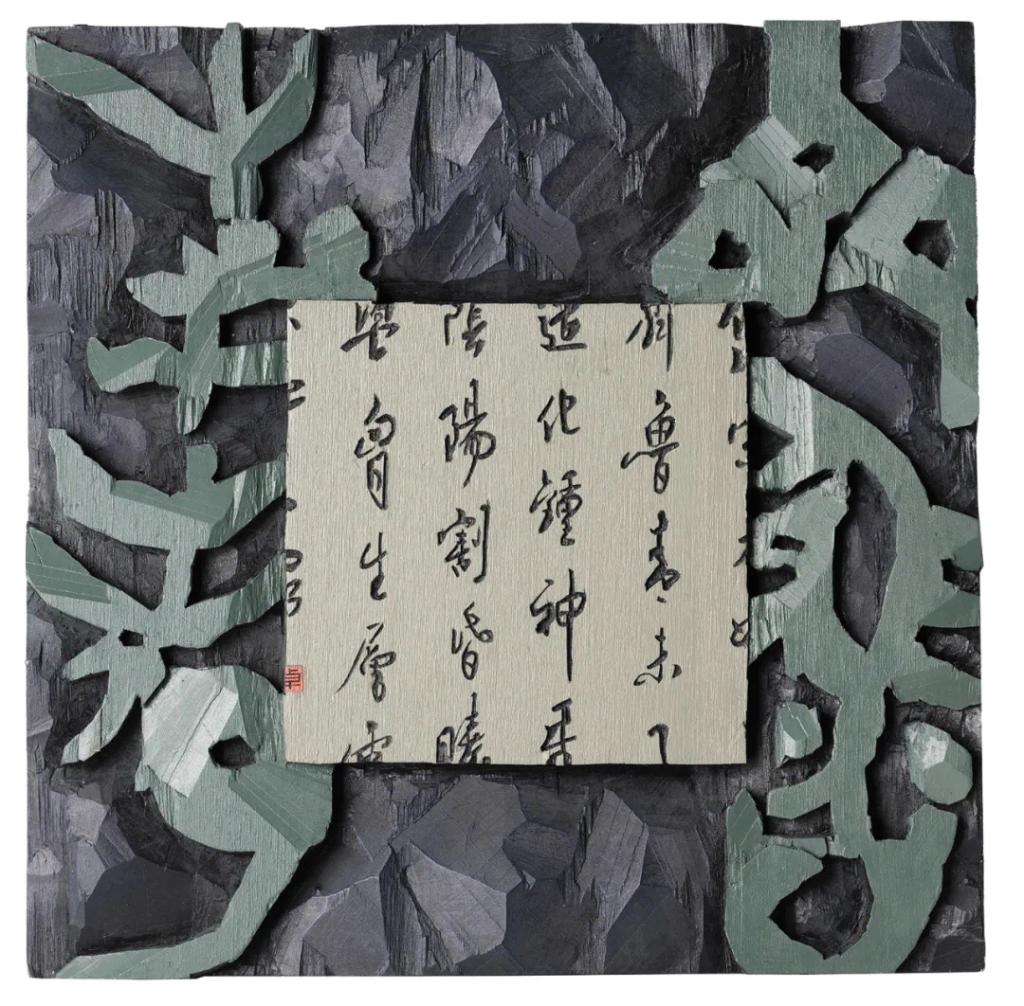 齊魯青未了
造化鍾神秀
陰陽割昏曉
胷生層雲
卓